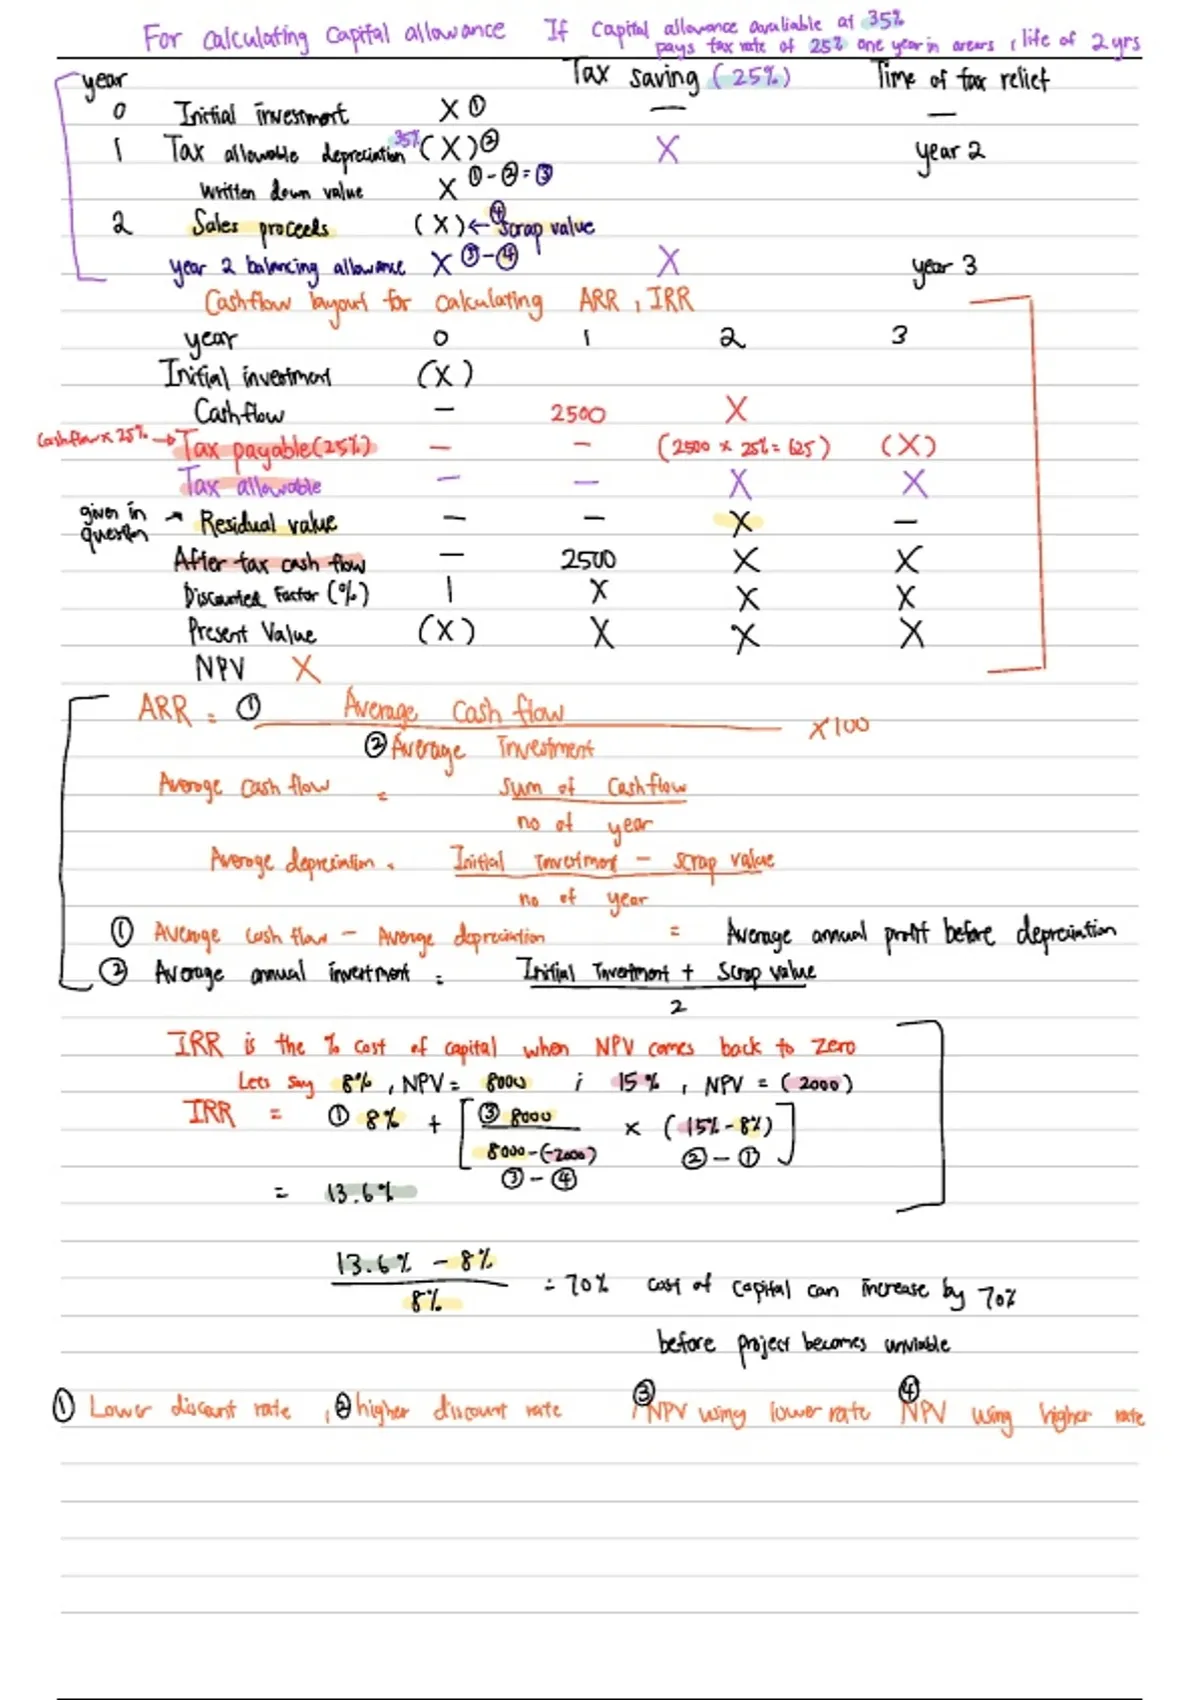 For calculating Capital allowance If Capital allowance avaliable at 35%
pays tax rate of 25% one year in arears, life of 2 yrs
year Tax saving (25%) Time of tax relief
0 Initial investment X ① — —
1 Tax allowable depreciation 35% (X) ② X year 2
Written down value X ①-②=③
2 Sales proceeds (X) ← ④ Scrap value
year 2 balancing allowance X ③-④ X year 3
Cashflow layout for calculating ARR, IRR
year 0 1 2 3
Initial investment (X)
Cashflow - 2500 X
Cashflow x 25% → Tax payable (25%) - - (2500 x 25% = 625) (X)
Tax allowable - - X X
given in question → Residual value - - X -
After tax cash flow - 2500 X X
Discounted Factor (%) 1 X X X
Present Value (X) X X X
NPV X
ARR = ① Average Cash flow x100
② Average Investment
Average cash flow = Sum of Cashflow
no of year
Average depreciation = Initial Investment - scrap value
no of year
① Average cash flow - Average depreciation = Average annual profit before depreciation
② Average annual investment = Initial Investment + Scrap value
2
IRR is the % cost of capital when NPV comes back to zero
Lets say 8%, NPV = 8000 ; 15%, NPV = (2000)
IRR = ① 8% + [ ③ 8000 x (15% - 8%) ]
8000-(-2000) ② - ①
③ - ④
= 13.6%
13.6% - 8%
= 70% cost of capital can increase by 70%
8%
before project becomes unviable
① Lower discount rate, ② higher discount rate, ③ NPV using lower rate ④ NPV using higher rate